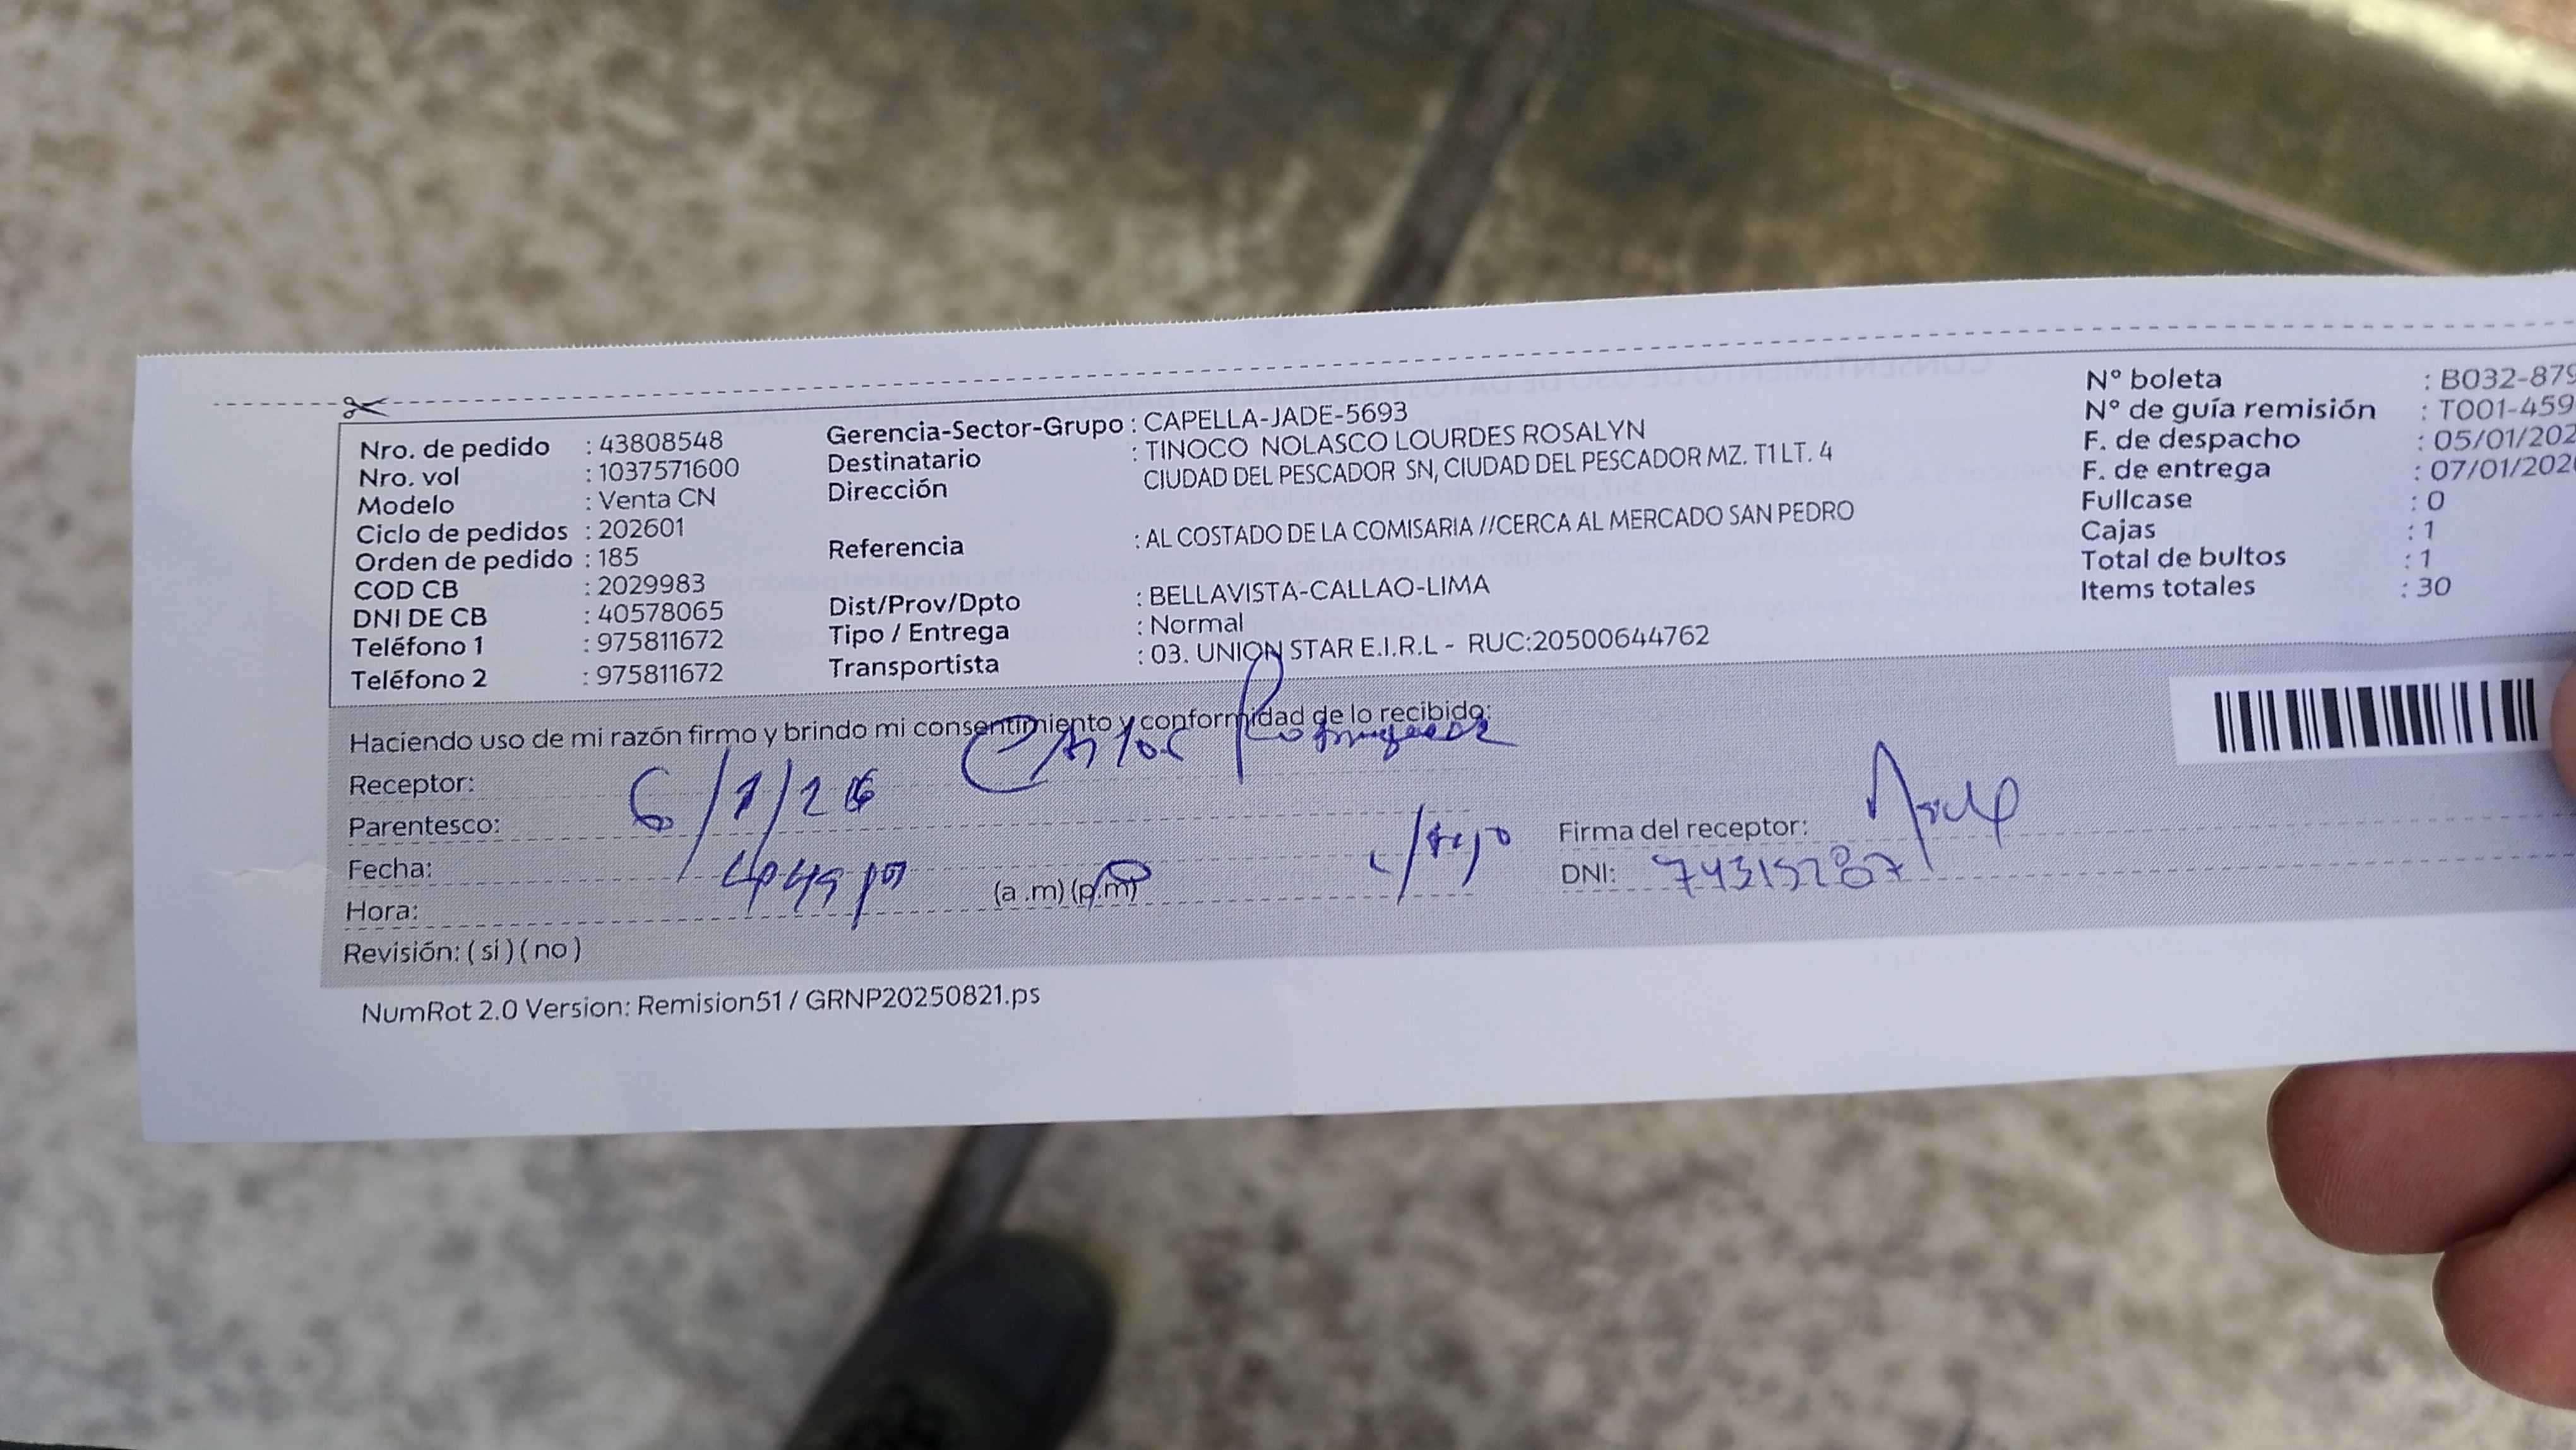 Nro. de pedido : 43808548
Nro. vol : 1037571600
Modelo : Venta CN
Ciclo de pedidos : 202601
Orden de pedido : 185
COD CB : 2029983
DNI DE CB : 40578065
Teléfono 1 : 975811672
Teléfono 2 : 975811672
Gerencia-Sector-Grupo : CAPELLA-JADE-5693
Destinatario : TINOCO NOLASCO LOURDES ROSALYN
Dirección CIUDAD DEL PESCADOR SN, CIUDAD DEL PESCADOR MZ. T1 LT. 4
Referencia : AL COSTADO DE LA COMISARIA //CERCA AL MERCADO SAN PEDRO
Dist/Prov/Dpto : BELLAVISTA-CALLAO-LIMA
Tipo / Entrega : Normal
Transportista : 03. UNION STAR E.I.R.L - RUC:20500644762
N° boleta : B032-879
N° de guía remisión : T001-459
F. de despacho : 05/01/202
F. de entrega : 07/01/202
Fullcase : 0
Cajas : 1
Total de bultos : 1
Items totales : 30
Haciendo uso de mi razón firmo y brindo mi consentimiento y conformidad de lo recibido:
Receptor: Carlos
Parentesco: 6/1/26
Fecha:
Hora: (a .m) (p.m)
Firma del receptor:
DNI: 74315287
Revisión: ( si ) ( no )
NumRot 2.0 Version: Remision51 / GRNP20250821.ps